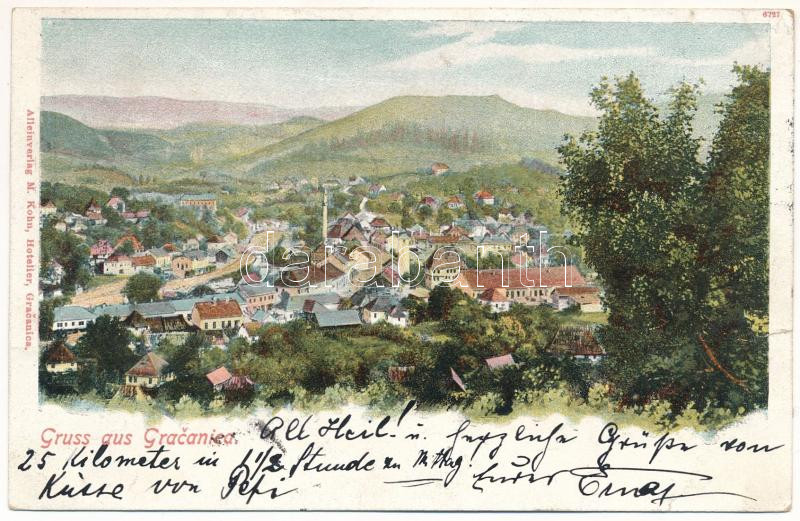 6727
Alleinverlag M. Kohn, Hotelier, Gračanica.
darabanth
Gruss aus Gračanica.
All Heil! u. herzliche Grüße von
25 Kilometer in 1 1/2 Stunde zu Mttag. Eurer Ernst
Küsse von Pepi